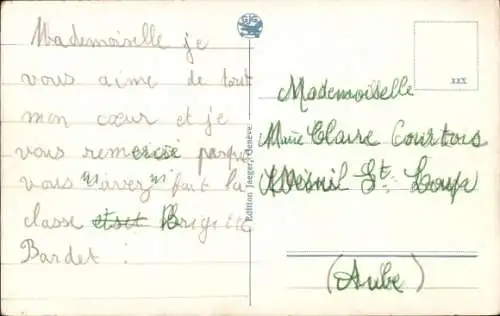 Mademoiselle je
vous aime de tout
mon cœur et je
vous remercie parque
vous m'avez fait la
classe et Brigitte
Bardet :
Edition Jaeger, Genève
xxx
Mademoiselle
Marie Claire Courtois
Mesnil St. Loup
(Aube)